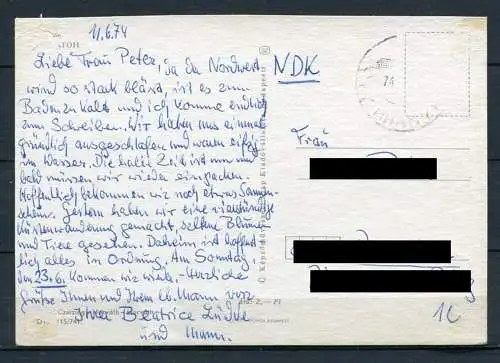 11.6.74
Liebe Frau Peter,
da der Nordwest-
wind so stark bläst, ist es zum
Baden zu kalt und ich komme endlich
zum Schreiben. Wir haben uns einmal
gründlich ausgeschlafen und waren eifrig
im Wasser. Die halbe Zeit ist um und
bald müssen wir wieder einpacken.
Hoffentlich bekommen wir noch etwas Sonnen-
schein. Gestern haben wir eine vierstündige
Küstenwanderung gemacht, seltene Blumen
und Tiere gesehen. Daheim ist hoffent-
lich alles in Ordnung. Am Sonntag
den 23.6. kommen wir wieder. Herzliche
Grüße Ihnen und Ihrem lb. Mann von
Ihrer Beatrice
und Mann.
NDK
74
Frau
1€